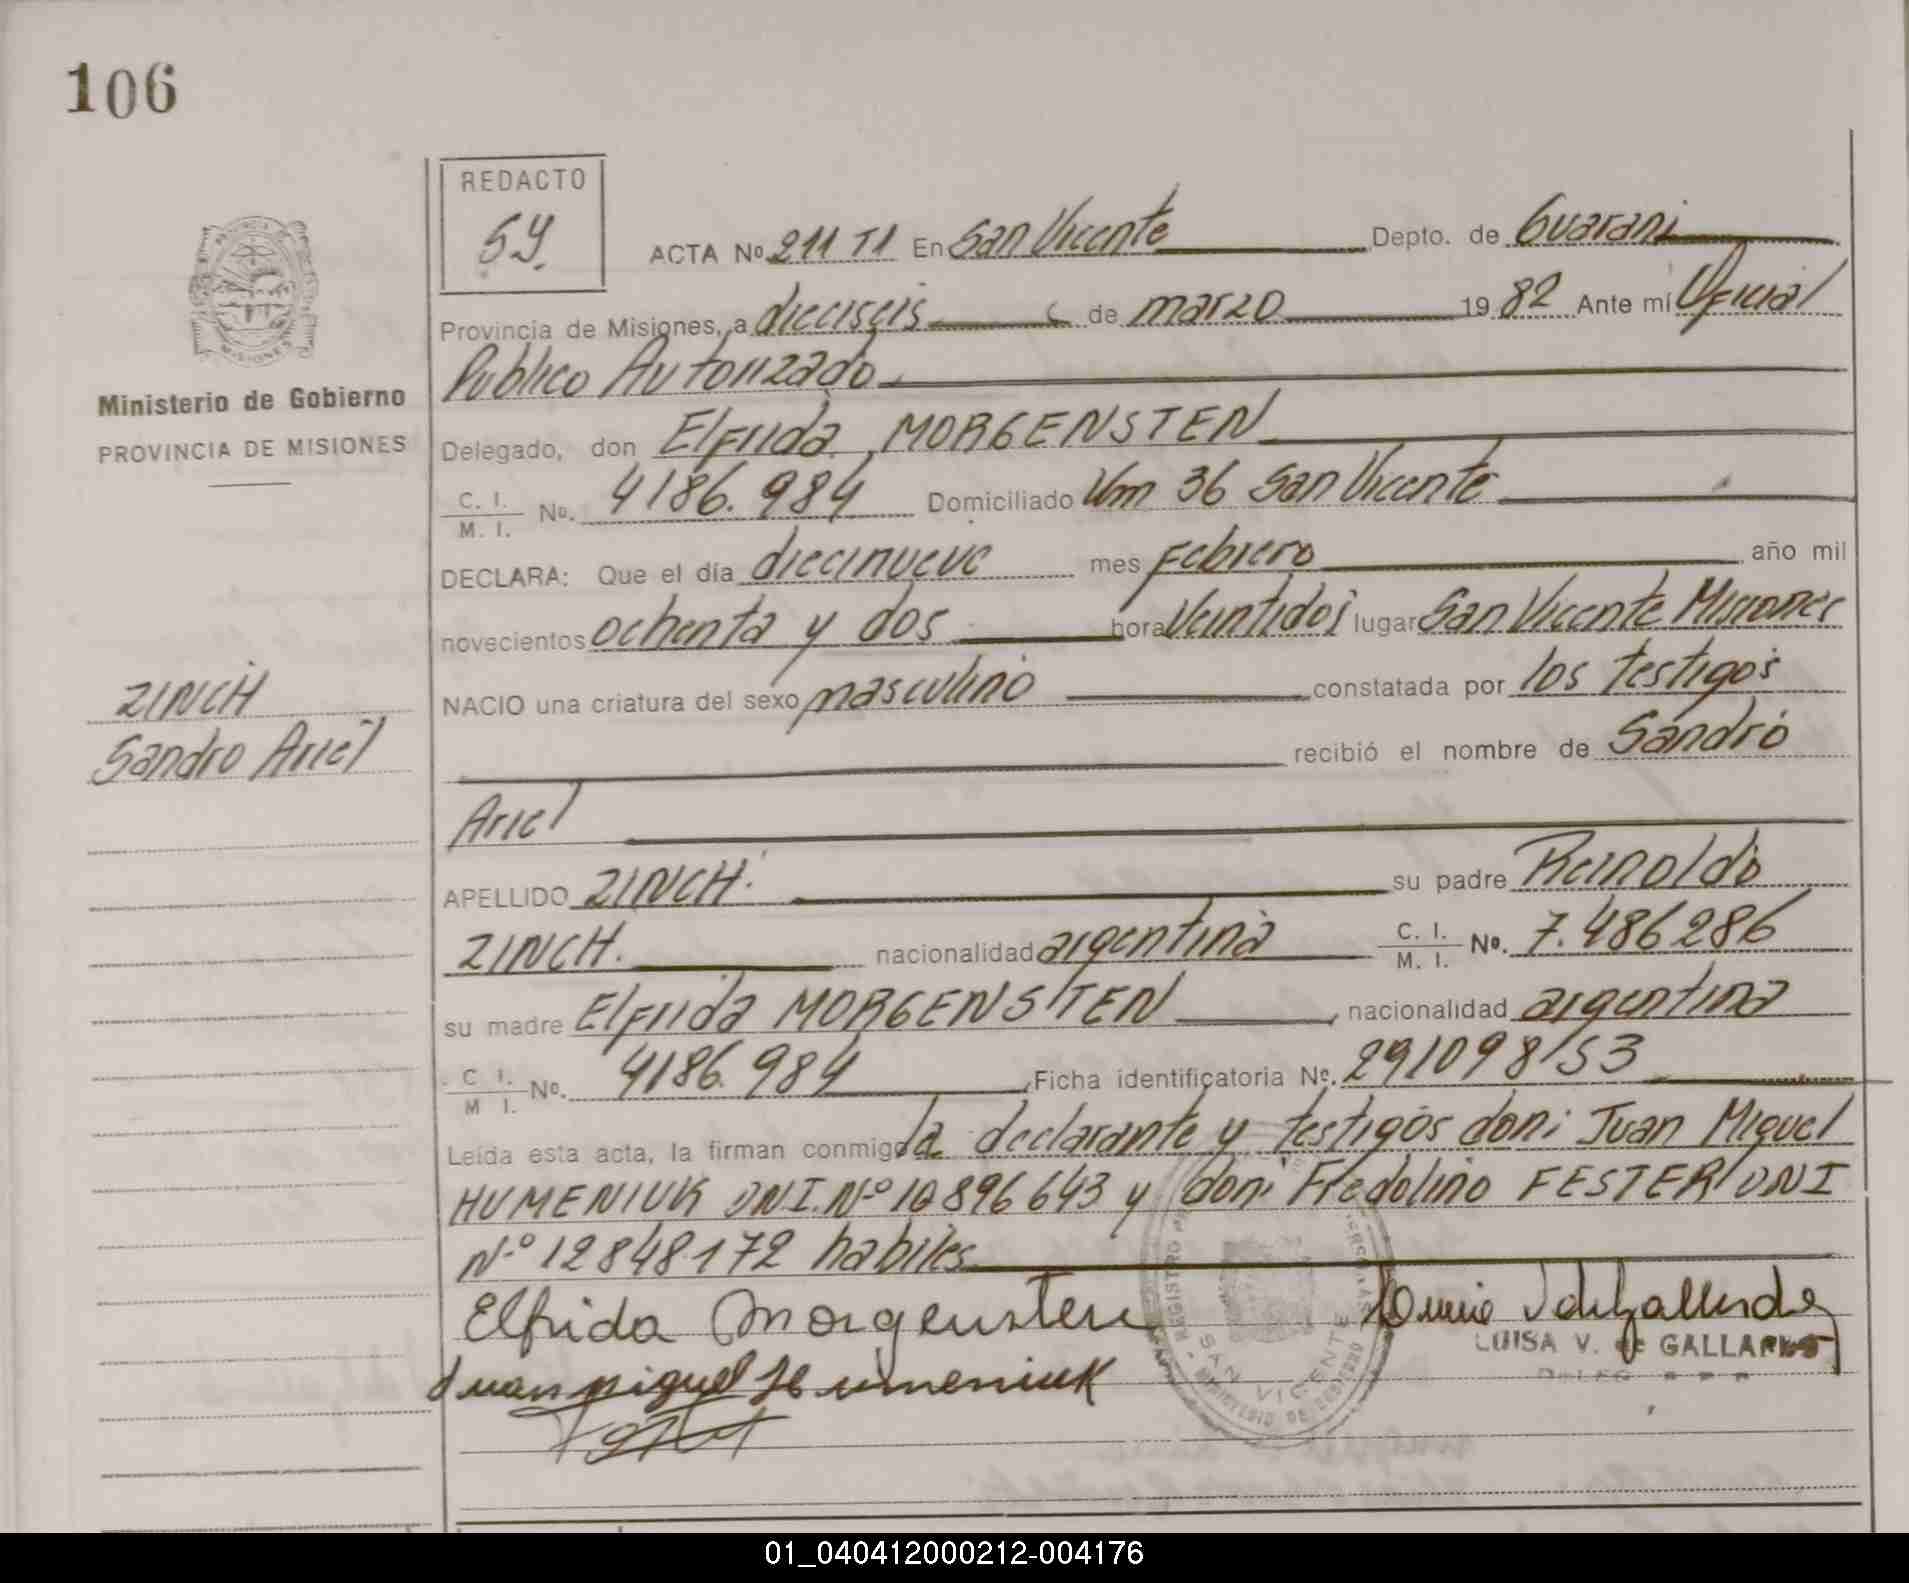 106
REDACTO
SY.
ACTA No 211 T1 En San Vicente Depto. de Guarani
Provincia de Misiones, a dieciseis de marzo 1982 Ante mí Oficial
Publico Autorizado
Ministerio de Gobierno
PROVINCIA DE MISIONES
Delegado, don Elfrida MORGENSTEN
C. I. / M. I. No. 4186.984 Domiciliado Km 36 San Vicente
DECLARA: Que el día diecinueve mes Febrero año mil
novecientos ochenta y dos hora Veintidos lugar San Vicente Misiones
NACIO una criatura del sexo masculino constatada por los testigos
ZINCH
Sandro Ariel
recibió el nombre de Sandro
Ariel
APELLIDO ZINCH. su padre Reinoldo
ZINCH. nacionalidad argentina C. I. / M. I. No. 7.486286
su madre Elfrida MORGENSTEN, nacionalidad argentina
C. I. / M. I. No. 4186.984, Ficha identificatoria No. 291098/53
Leída esta acta, la firman conmigo la declarante y testigos don: Juan Miguel
HUMENIUK DNI. Nº 10896643 y don: Fredolino FESTER DNI
Nº 12848172 habiles
Elfrida Morgensten
Juan Miguel Humeniuk
LUISA V. de GALLARDO
REGISTRO
SAN VICENTE
MINISTERIO DE GOBIERNO
01_040412000212-004176